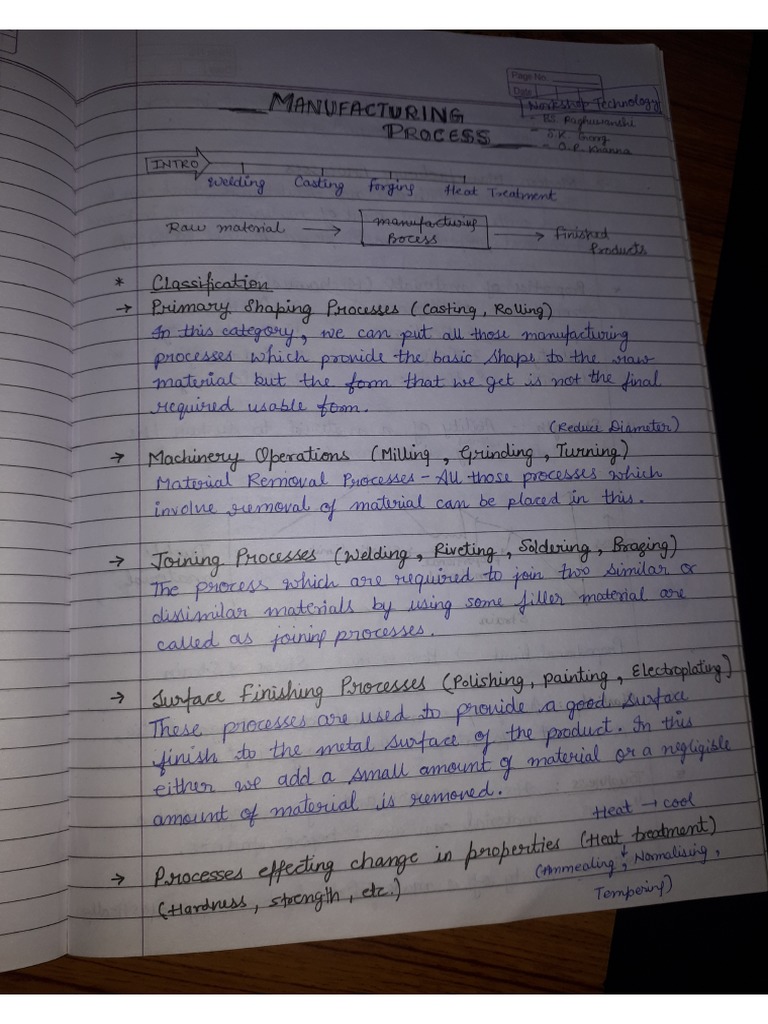 Page No.
Date
Workshop Technology
- B.S. Raghuwanshi
- S.K. Garg
- O.P. Khanna
MANUFACTURING
PROCESS
INTRO
Welding Casting Forging Heat Treatment
Raw material → manufacturing → Finished
Process Products
* Classification
→ Primary Shaping Processes (Casting, Rolling)
In this category, we can put all those manufacturing
processes which provide the basic shape to the raw
material but the form that we get is not the final
required usable form.
(Reduce Diameter)
→ Machinery Operations (Milling, Grinding, Turning)
Material Removal Processes - All those processes which
involve removal of material can be placed in this.
→ Joining Processes (Welding, Riveting, Soldering, Brazing)
The process which are required to join two similar or
dissimilar materials by using some filler material are
called as joining processes.
→ Surface Finishing Processes (Polishing, painting, Electroplating)
These processes are used to provide a good surface
finish to the metal surface of the product. In this
either we add a small amount of material or a negligible
amount of material is removed.
Heat → cool
→ Processes effecting change in properties (Heat treatment)
(Hardness, strength, etc.) (Annealing, Normalising,
Tempering)